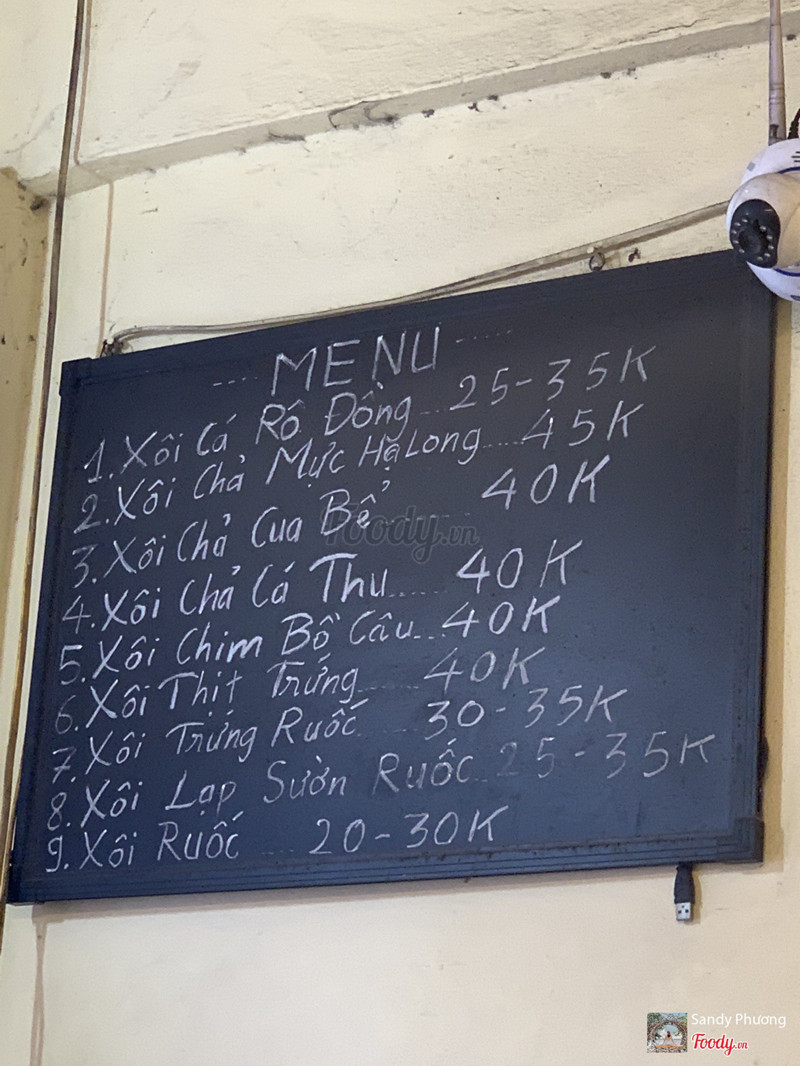 ---- MENU -----
1. Xôi Cá Rô Đồng ... 25-35K
2. Xôi Chả Mực Hạ Long ... 45K
3. Xôi Chả Cua Bể ..... 40K
4. Xôi Chả Cá Thu ..... 40K
5. Xôi Chim Bồ Câu ... 40K
6. Xôi Thịt Trứng ...... 40K
7. Xôi Trứng Ruốc ... 30-35K
8. Xôi Lạp Sườn Ruốc .. 25-35K
9. Xôi Ruốc .... 20-30K
Foody.vn
Sandy Phương
Foody.vn